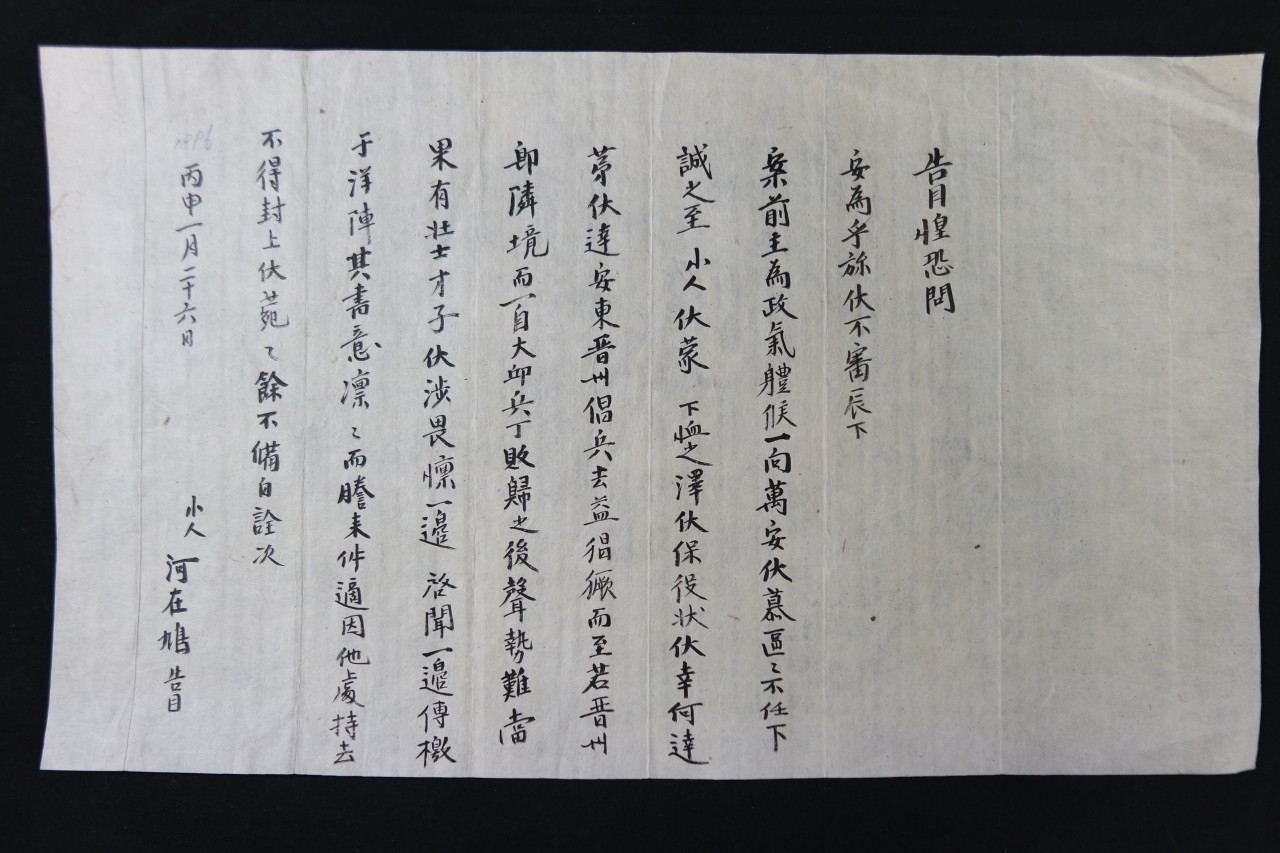 告目惶恐問
安爲乎旀伏不審辰下
案前主爲政氣體候一向萬安伏慕區〻不任下
誠之至 小人伏蒙 下恤之澤伏保役狀伏幸何達
第伏達安東晋州倡兵去益猖獗而至若晋州
卽隣境而一自大邱兵丁敗歸之後聲勢難當
果有壯士才子伏涉畏懍一邊 啓聞一邊傳檄
于洋陣其書意凛〻而謄來件適因他處持去
不得封上伏菀〻餘不備白詮次
丙申一月二十六日
小人 河在鳩 告目
1896